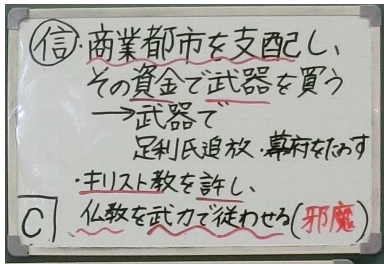 信・商業都市を支配し、
その資金で武器を買う
→武器で
足利氏追放・幕府をたおす
・キリスト教を許し、
C 仏教を武力で従わせる(邪魔)